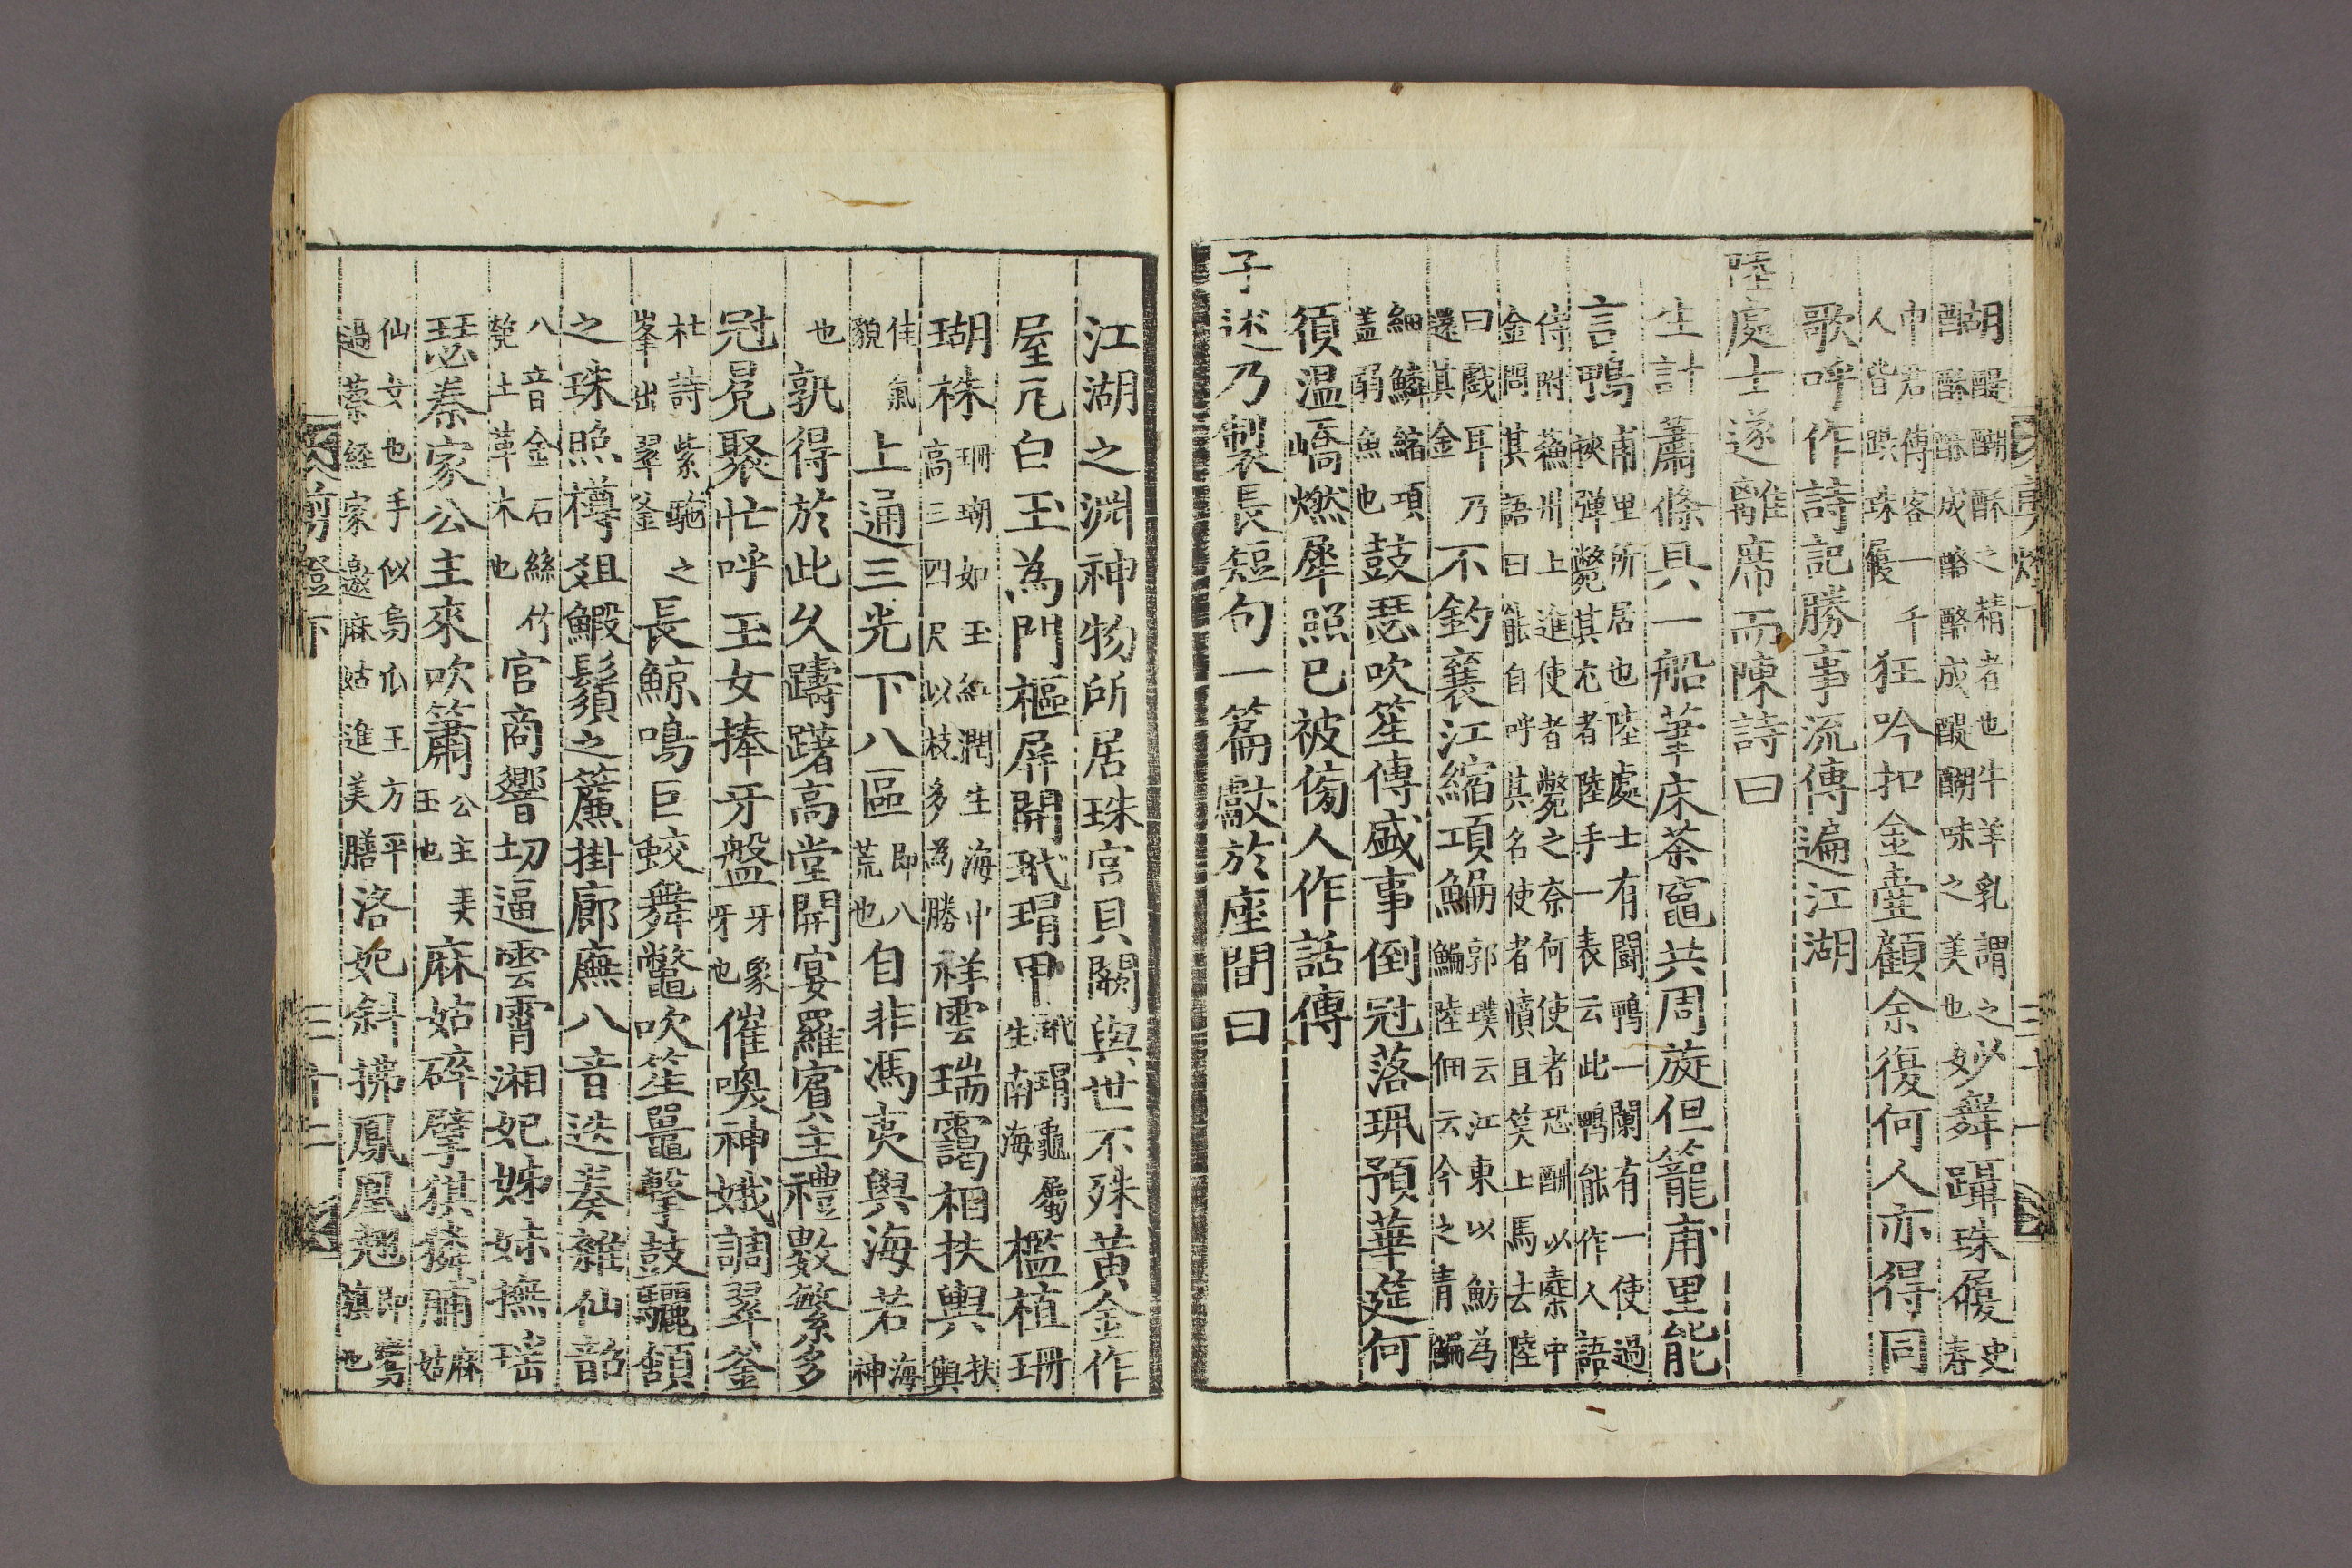 醐醍醐酥之精者也牛羊乳謂之
酥酥成酪酪成醍醐味之美也
妙舞躡珠履
史
春
申君傳客一千
人皆躡珠履
狂吟扣金壺顧余復何人亦得同
歌呼作詩記勝事流傳遍江湖
陸處士遂離席而陳詩曰
生計蕭條具一船筆床茶竈共周旋但籠甫里能
言鴨
甫里所居也陸處士有鬪鴨一闌有一使過
挾彈斃其尤者陸手一表云此鴨能作人語
侍附蘓州上進使者斃之奈何使者恐酬以橐中
金問其語曰能自呼其名使者憤且笑上馬去陸
曰戲耳乃
還其金
不釣襄江縮項鯿
郭璞云江東以魴為
鯿陸佃云今之青鯿
細鱗縮項
盖弱魚也
鼓瑟吹笙傳盛事倒冠落珮預華筵何
須温嶠燃犀照已被傍人作話傳
子述乃製長短句一篇獻於座間曰
江湖之淵神物所居珠宮貝闕與世不殊黃金作
屋瓦白玉為門樞屏開玳瑁甲
玳瑁龜屬
生南海
檻植珊
瑚株
珊瑚如玉紅潤生海中
高三四尺以枝多為勝
祥雲瑞靄相扶輿
扶
輿
佳氣
貌
上通三光下八區
即八
荒也
自非馮夷與海若
海
神
也
孰得於此久躊躇高堂開宴羅賓主禮數繁多
冠冕聚忙呼玉女捧牙盤
牙象
牙也
催喚神娥調翠釜
杜詩紫駞之
峯出翠釜
長鯨鳴巨蛟舞鼈吹笙鼉擊鼓驪頷
之珠照樽俎鰕鬚之簾掛廊廡八音迭奏雜仙韶
八音金石絲竹
匏土革木也
宮商響切逼雲霄湘妃姊妹撫瑤
瑟秦家公主來吹簫
公主弄
玉也
麻姑碎擘猉獜脯
麻
姑
仙女也手似鳥爪王方平
過蔡經家邀麻姑進美膳
洛妃斜拂鳳凰翹
即鸞
旗也
剪燈下
三十二
三十一